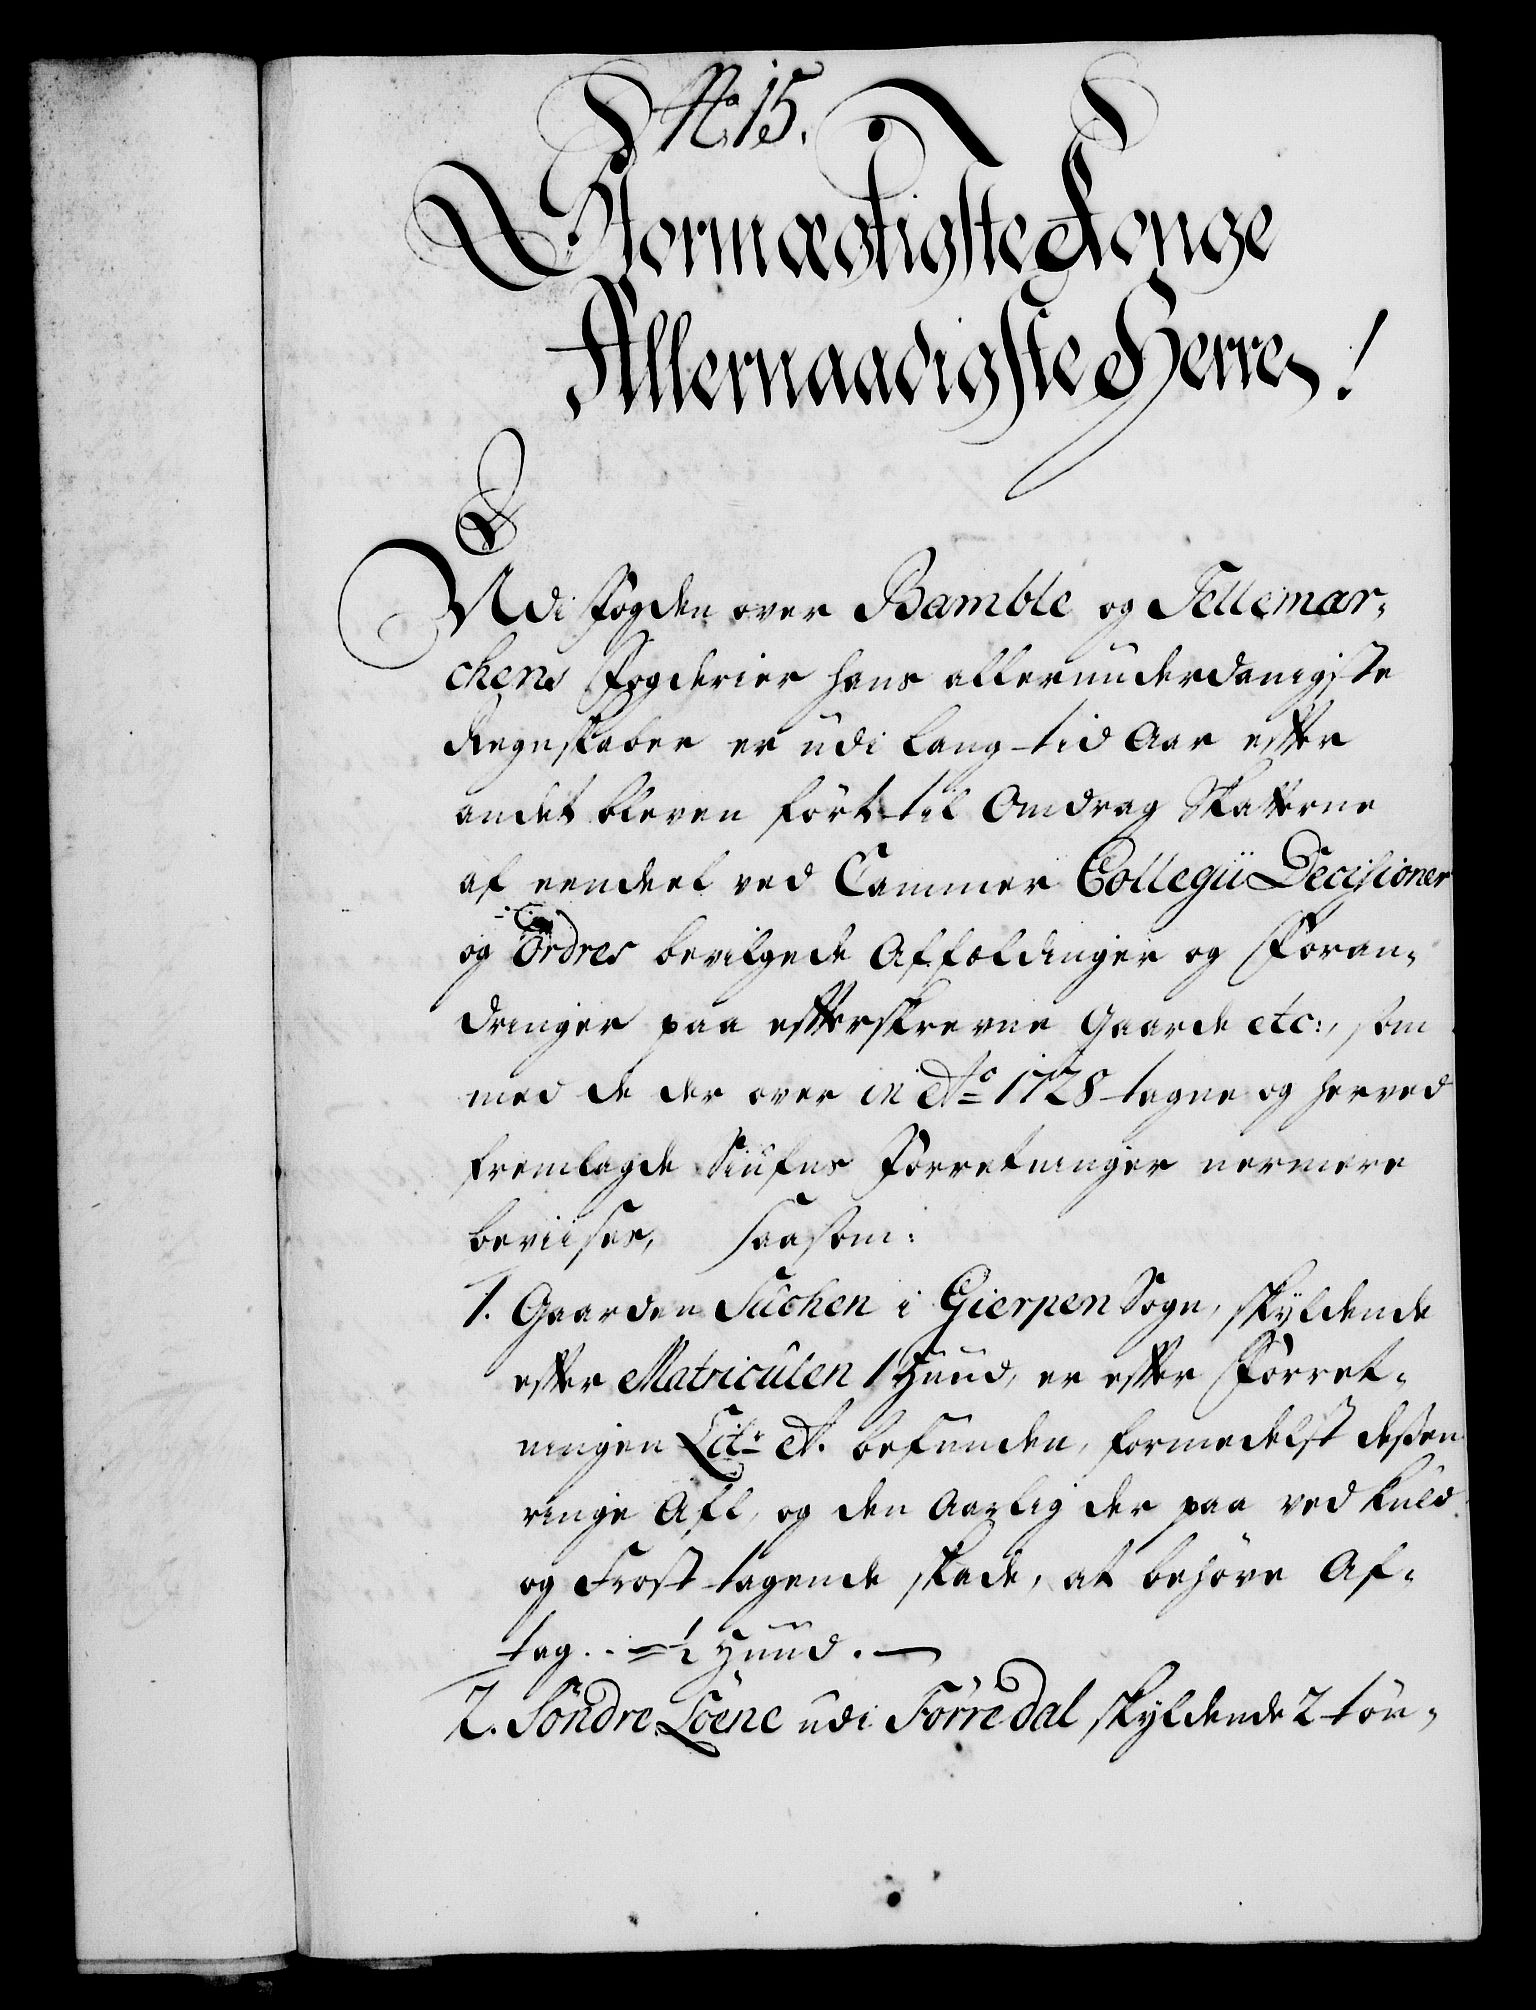 No 15.
Stormægtigste Konge
Allernaadigste Herre!
Udi Fogden over Bamble og Tellemar-
chens Fogderier hans allerunderdanigste
Regnskaber er udi lang tid Aar efter
andet bleven fört til Omdrag Skatterne
af eendeel ved Cammer Collegii Decisioner
og Ordres bevilgede Affældinger og Foran-
dringer paa efterskrevne Gaarde etc:, som
med de der over in Ao 1728 tagne og herved
fremlagde Siufns Forretninger nermere
beviises, saasom:
1. Gaarden Suchen i Gierpen Sogn, skyldende
efter Matriculen 1 Huud, er efter Forret-
ningen Litr A. befunden, formedelst dessen
ringe Afl, og den Aarlig der paa ved kuld
og Frost tagende skade, at behöve Af-
tag .. = ½ Huud. —
2. Söndre Löene udi Förredal skyldende 2 tör-